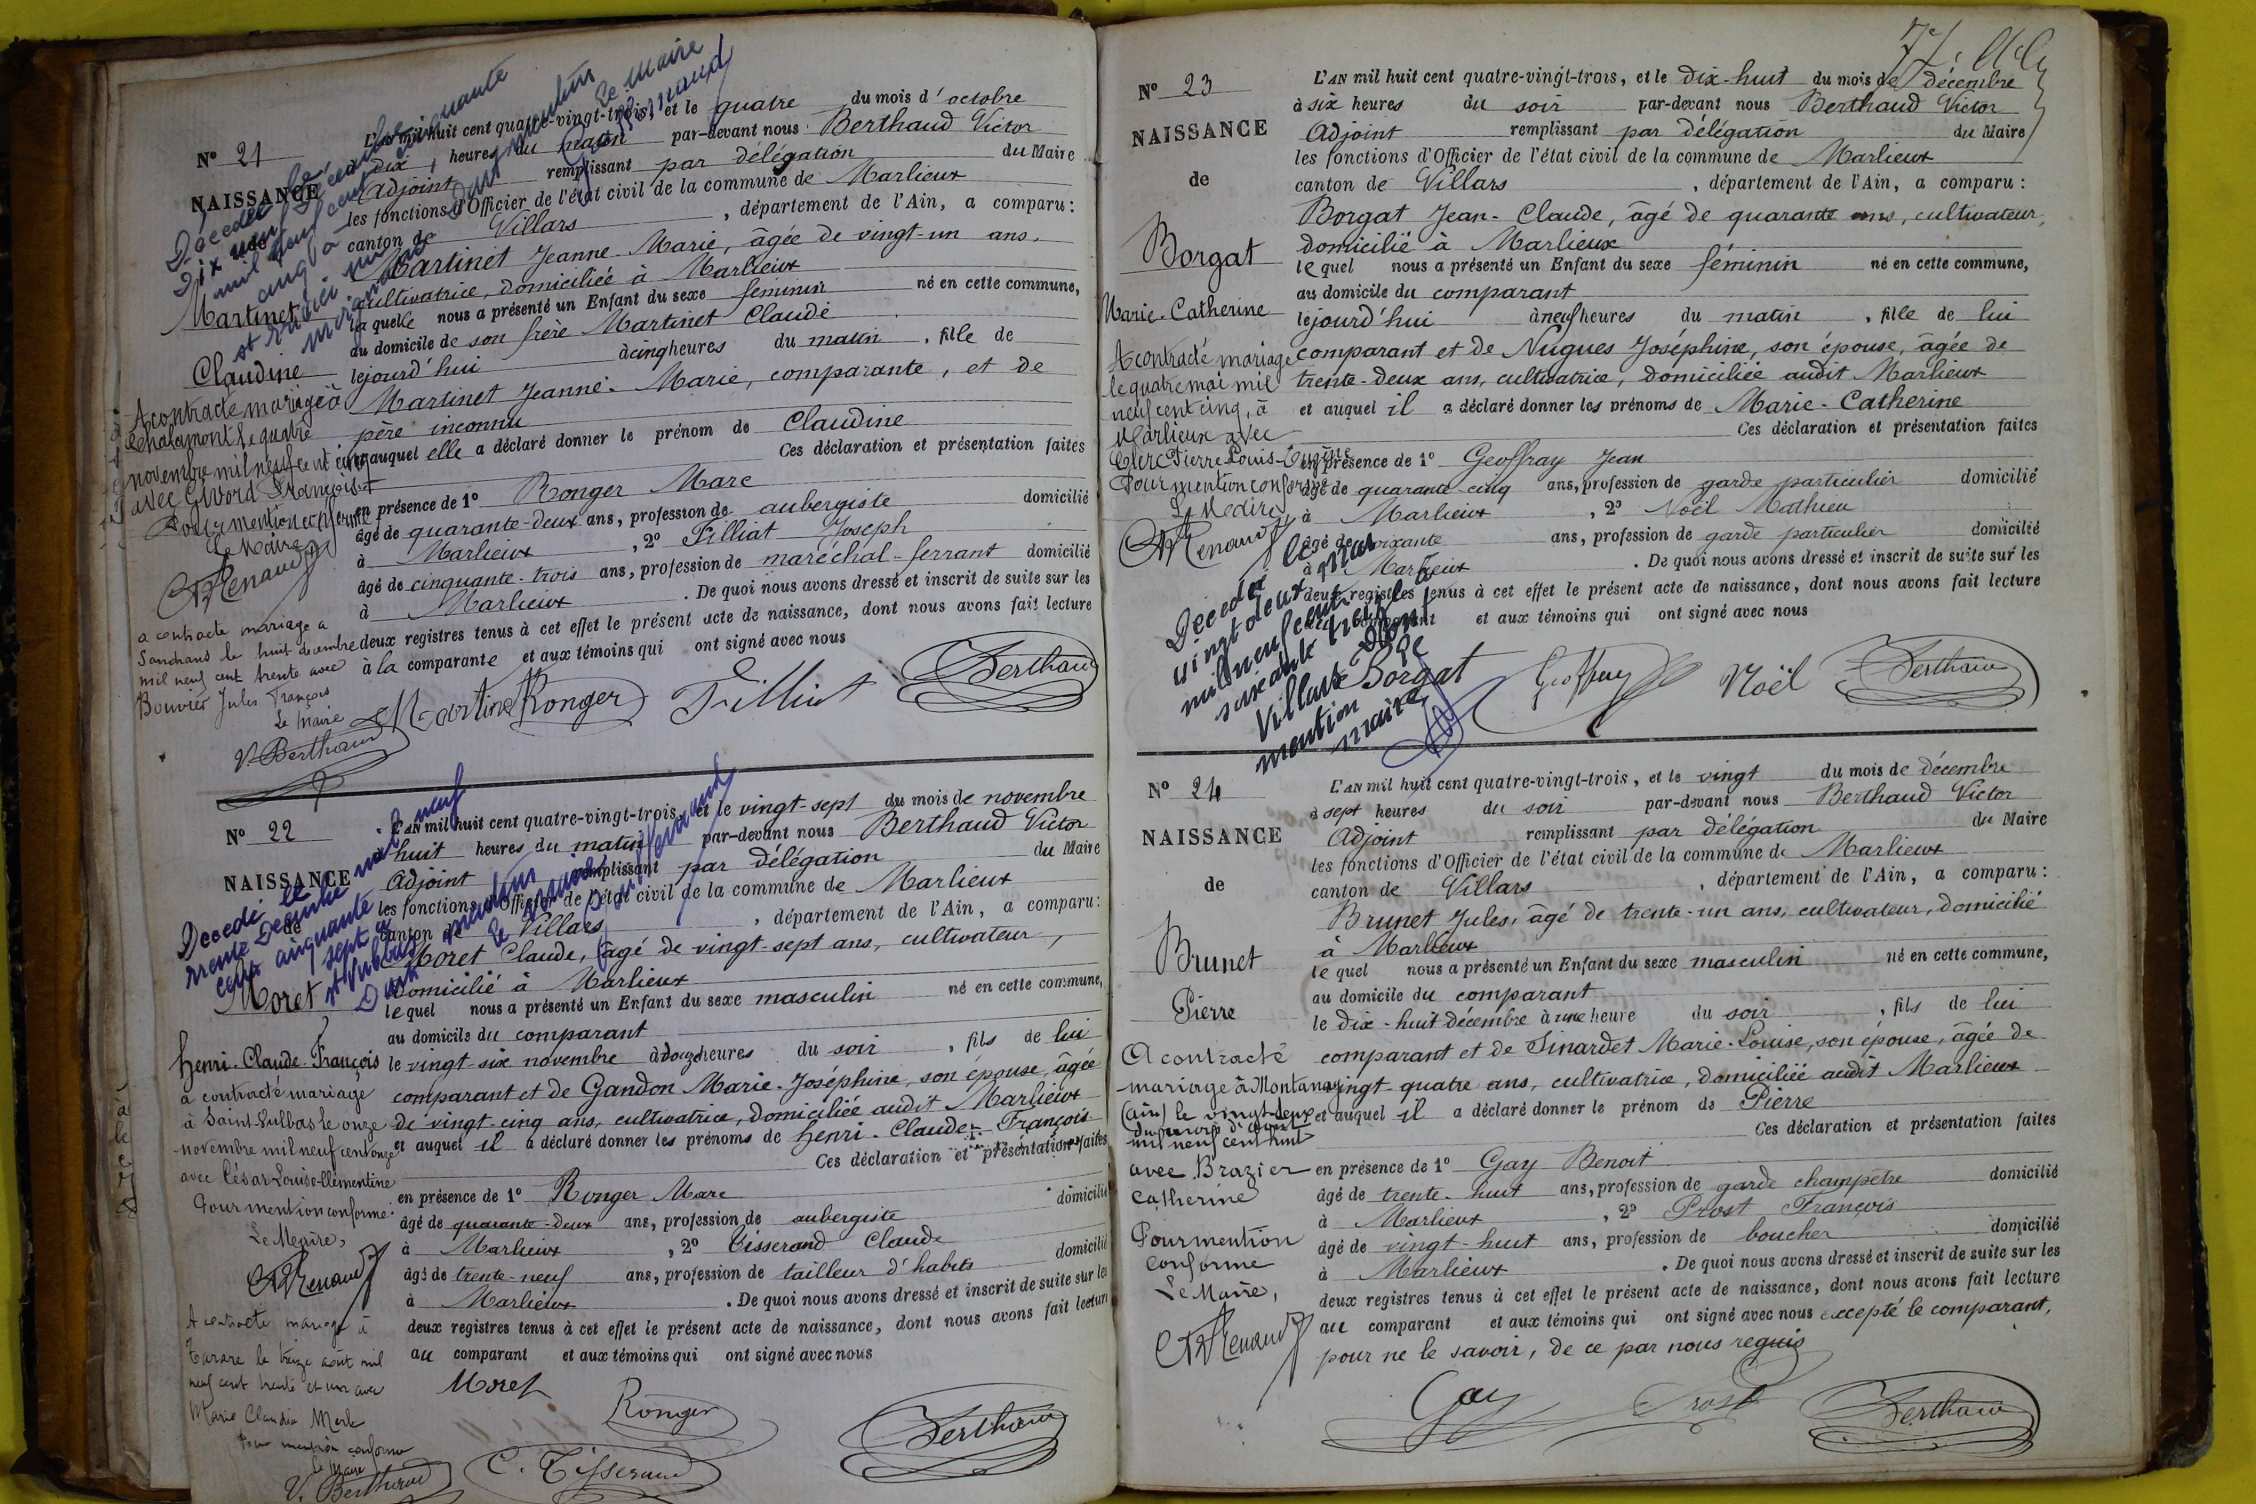 N° 21
NAISSANCE
de
Martinet
Claudine
A contracté mariage à
Chalamont le quatre
novembre mil neuf cent cinq
avec
Pour mention conforme
Le Maire
A Renaud
a contracté mariage a
Sandrans le huit decembre
mil neuf cent trente avec
Bouvier Jules François
Le Maire
V. Berthaud
Décédée le
dix neuf
mil neuf cent cinquante
cinq à
Le Maire
L'AN mil huit cent quatre-vingt-trois, et le quatre du mois d'octobre
à dix heures du matin par-devant nous Berthaud Victor
Adjoint remplissant par délégation du Maire
les fonctions d'Officier de l'état civil de la commune de Marlieux
canton de Villars, département de l'Ain, a comparu :
Martinet Jeanne-Marie, âgée de vingt-un ans,
cultivatrice, domiciliée à Marlieux
laquelle nous a présenté un Enfant du sexe féminin né en cette commune,
au domicile de son frère Martinet Claude
le jourd'hui à cinq heures du matin, fille de
Martinet Jeanne-Marie, comparante, et de
père inconnu
et auquel elle a déclaré donner le prénom de Claudine
Ces déclaration et présentation faites
en présence de 1° Ronger Marc
âgé de quarante-deux ans, profession de aubergiste domicilié
à Marlieux, 2° Filliat Joseph
âgé de cinquante-trois ans, profession de maréchal-ferrant domicilié
à Marlieux. De quoi nous avons dressé et inscrit de suite sur les
deux registres tenus à cet effet le présent acte de naissance, dont nous avons fait lecture
à la comparante et aux témoins qui ont signé avec nous
Martinet Ronger Filliat Berthaud
N° 22
NAISSANCE
de
Moret
Henri-Claude-François
a contracté mariage
à Saint-Vulbas le onze
novembre mil neuf cent onze
avec César Louise-Clémentine
Pour mention conforme
Le Maire,
A Renaud
A contracté mariage à
Tarare le treize août mil
neuf cent trente et un avec
Marie Claudia Merle
Pour mention conforme
le Maire
V. Berthaud
Décédé le
trente Décembre mil neuf
cent cinquante
sept à
St Vulbas
L'AN mil huit cent quatre-vingt-trois, et le vingt-sept du mois de novembre
à huit heures du matin par-devant nous Berthaud Victor
Adjoint remplissant par délégation du Maire
les fonctions d'Officier de l'état civil de la commune de Marlieux
canton de Villars, département de l'Ain, a comparu :
Moret Claude, âgé de vingt-sept ans, cultivateur,
domicilié à Marlieux
lequel nous a présenté un Enfant du sexe masculin né en cette commune,
au domicile du comparant
le vingt-six novembre à douze heures du soir, fils de lui
comparant et de Gandon Marie-Joséphine, son épouse, âgée
de vingt-cinq ans, cultivatrice, domiciliée audit Marlieux
et auquel il a déclaré donner les prénoms de Henri-Claude-François
Ces déclaration et présentation faites
en présence de 1° Ronger Marc
âgé de quarante-deux ans, profession de aubergiste domicilié
à Marlieux, 2° Tisserand Claude
âgé de trente-neuf ans, profession de tailleur d'habits domicilié
à Marlieux. De quoi nous avons dressé et inscrit de suite sur les
deux registres tenus à cet effet le présent acte de naissance, dont nous avons fait lecture
au comparant et aux témoins qui ont signé avec nous
Moret Ronger Berthaud
C. Tisserand
N° 23
NAISSANCE
de
Borgat
Marie-Catherine
A contracté mariage
le quatre mai mil
neuf cent cinq, à
Marlieux avec
Clerc Pierre Louis-Eugène
Pour mention conforme
Le Maire,
A Renaud
Décédée le
vingt deux mai
mil neuf cent
soixante treize à
Villars
mention
maire
L'AN mil huit cent quatre-vingt-trois, et le dix-huit du mois de décembre
à six heures du soir par-devant nous Berthaud Victor
Adjoint remplissant par délégation du Maire
les fonctions d'Officier de l'état civil de la commune de Marlieux
canton de Villars, département de l'Ain, a comparu :
Borgat Jean-Claude, âgé de quarante ans, cultivateur,
domicilié à Marlieux
lequel nous a présenté un Enfant du sexe féminin né en cette commune,
au domicile du comparant
le jourd'hui à neuf heures du matin, fille de lui
comparant et de Nugues Joséphine, son épouse, âgée de
trente-deux ans, cultivatrice, domiciliée audit Marlieux
et auquel il a déclaré donner les prénoms de Marie-Catherine
Ces déclaration et présentation faites
en présence de 1° Geoffray Jean
âgé de quarante-cinq ans, profession de garde particulier domicilié
à Marlieux, 2° Noël Mathieu
âgé de soixante ans, profession de garde particulier domicilié
à Marlieux. De quoi nous avons dressé et inscrit de suite sur les
deux registres tenus à cet effet le présent acte de naissance, dont nous avons fait lecture
au comparant et aux témoins qui ont signé avec nous
Borgat Geoffray Noël Berthaud
N° 24
NAISSANCE
de
Brunet
Pierre
A contracté
mariage à Montanay
(ain) le vingt-deux
du mois d'août
mil neuf cent huit
avec Brazier
Catherine
Pour mention
conforme
Le Maire,
A Renaud
L'AN mil huit cent quatre-vingt-trois, et le vingt du mois de décembre
à sept heures du soir par-devant nous Berthaud Victor
Adjoint remplissant par délégation du Maire
les fonctions d'Officier de l'état civil de la commune de Marlieux
canton de Villars, département de l'Ain, a comparu :
Brunet Jules, âgé de trente-un ans, cultivateur, domicilié
à Marlieux
lequel nous a présenté un Enfant du sexe masculin né en cette commune,
au domicile du comparant
le dix-huit décembre à une heure du soir, fils de lui
comparant et de Sinardet Marie-Louise, son épouse, âgée de
vingt-quatre ans, cultivatrice, domiciliée audit Marlieux
et auquel il a déclaré donner le prénom de Pierre
Ces déclaration et présentation faites
en présence de 1° Gay Benoit
âgé de trente-huit ans, profession de garde champêtre domicilié
à Marlieux, 2° Prost François
âgé de vingt-huit ans, profession de boucher domicilié
à Marlieux. De quoi nous avons dressé et inscrit de suite sur les
deux registres tenus à cet effet le présent acte de naissance, dont nous avons fait lecture
au comparant et aux témoins qui ont signé avec nous excepté le comparant,
pour ne le savoir, de ce par nous requis
Gay Prost Berthaud